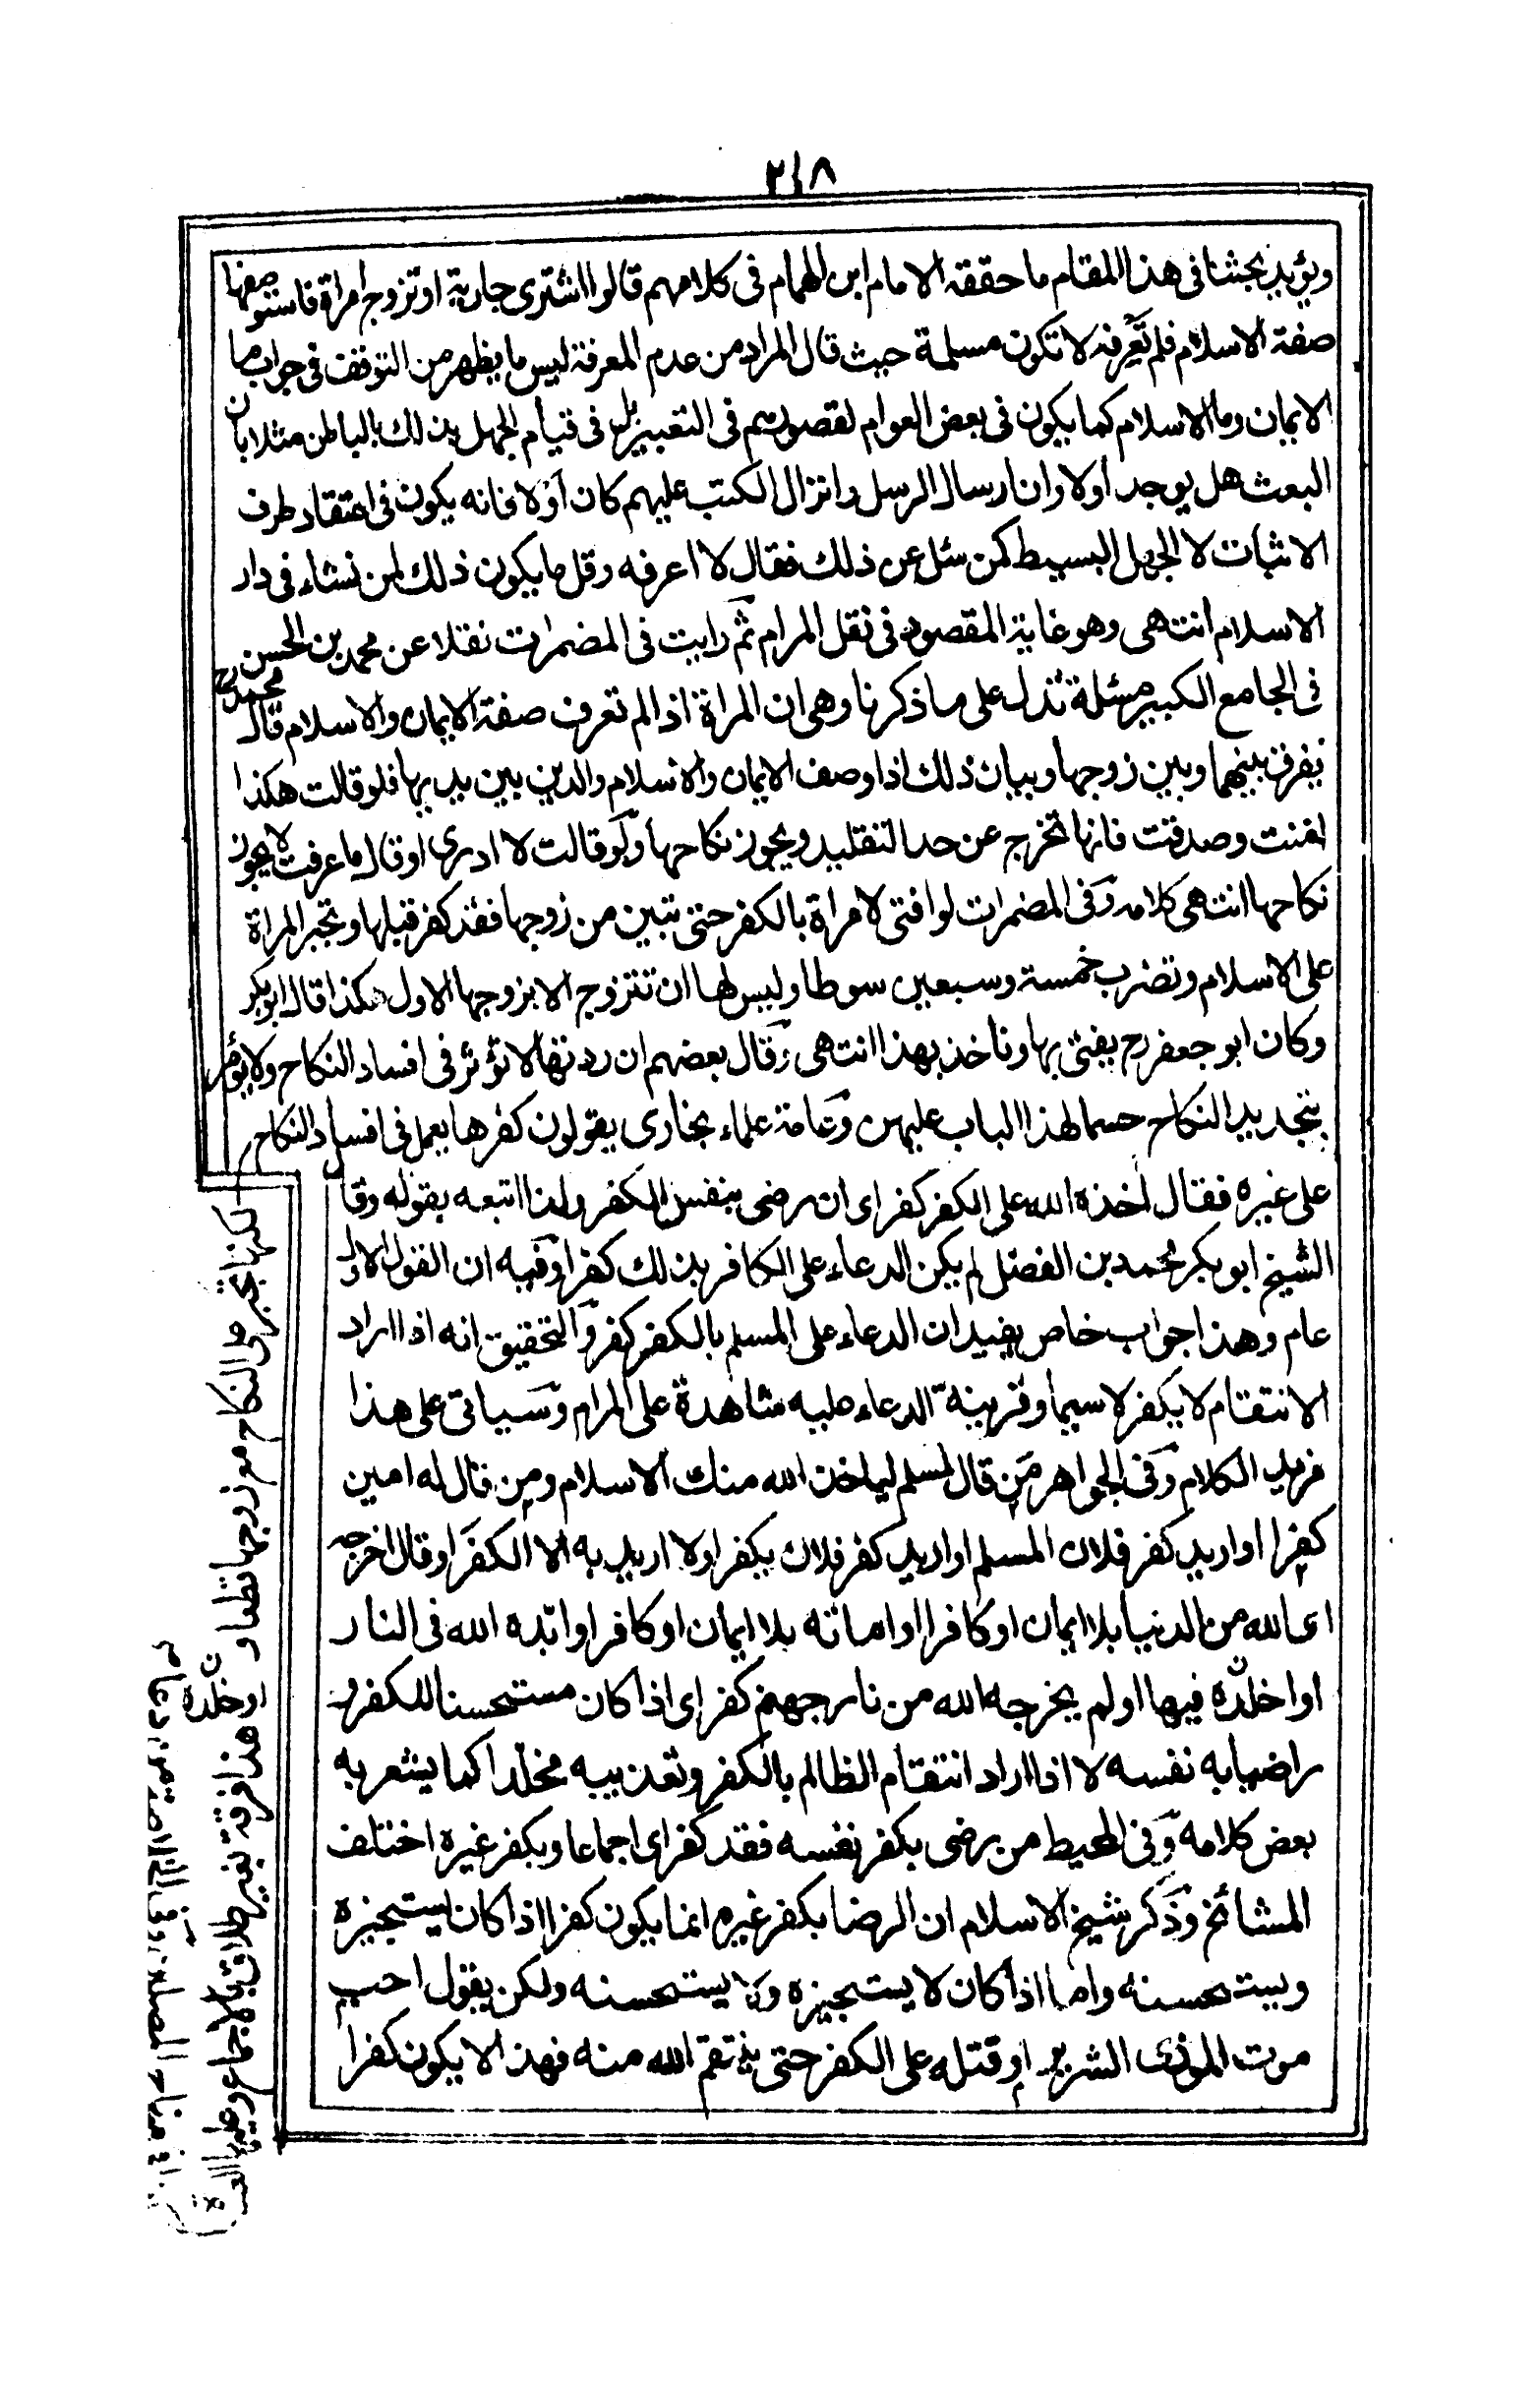 ٢١٨
ويؤيد بحثنا فى هذا المقام ما حققه الامام ابن الهمام فى كلامهم قالوا اشترى جارية او تزوج امراة فاستوصفها
صفة الاسلام فلم تعرفه لا تكون مسلمة حيث قال المراد من عدم المعرفة ليس ما يظهر من التوقف فى جواب ما
الايمان وما الاسلام كما يكون فى بعض العوام لقصورهم فى التعبير بل فى قيام الجهل بذلك بالباطن مثلا بان
البعث هل يوجد اولا وان ارسال الرسل وانزال الكتب عليهم كان اولا فانه يكون فى اعتقاد طرف
الاثبات لا الجهل البسيط كمن سئل عن ذلك فقال لا اعرفه وقل ما يكون ذلك لمن نشاء فى دار
الاسلام انتهى وهو غاية المقصود فى نقل المرام ثم رايت فى المضمرات نقلا عن محمد بن الحسن
فى الجامع الكبير مسئلة تدل على ما ذكرنا وهى ان المراة اذا لم تعرف صفة الايمان والاسلام قال محمد رح
يفرق بينهما وبين زوجها وبيان ذلك اذا وصف الايمان والاسلام والدين بين يديها فلو قالت هكذا
امنت وصدقت فانها تخرج عن حد التقليد ويجوز نكاحها ولو قالت لا ادرى او قال ما عرفت لا يجوز
نكاحها انتهى كلامه وفى المضمرات لو افتى لامراة بالكفر حتى تبين من زوجها فقد كفر قبلها وتجبر المراة
على الاسلام وتضرب خمسة وسبعين سوطا وليس لها ان تتزوج الا بزوجها الاول هكذا قال ابو بكر
وكان ابو جعفر رح يفتى بها وناخذ بهذا انتهى وقال بعضهم ان ردتها لا تؤثر فى افساد النكاح ولا يؤمر
بتجديد النكاح حسما لهذا الباب عليهن وعامة علماء بخارى يقولون كفرها يعمل فى افساد النكاح
على غيره فقال اخذه الله على الكفر كفر اى ان رضى بنفس الكفر ولذا اتبعه بقوله وقال
الشيخ ابو بكر محمد بن الفضل لم يكن الدعاء على الكافر بذلك كفرا وفيه ان القول الاول
عام وهذا جواب خاص يفيد ان الدعاء على المسلم بالكفر كفر والتحقيق انه اذا اراد
الانتقام لا يكفر لا سيما وقرينة الدعاء عليه شاهدة على المرام وسياتى على هذا
مزيد الكلام وفى الجواهر من قال لمسلم لياخذ الله منك الاسلام ومن قال له امين
كفرا او اريد كفر فلان المسلم او اريد كفر فلان يكفر او لا اريد به الا الكفر او قال اخرجه
اى الله من الدنيا بلا ايمان او كافرا او اماته بلا ايمان او كافرا او ابده الله فى النار
او اخلده فيها او لم يخرجه الله من نار جهنم كفر اى اذا كان مستحسنا للكفر و
راضيا به نفسه لا اذا اراد انتقام الظالم بالكفر وتعذيبه مخلدا كما يشعر به
بعض كلامه وفى المحيط من رضى بكفر نفسه فقد كفر اى اجماعا وبكفر غيره اختلف
المشائخ وذكر شيخ الاسلام ان الرضا بكفر غيره انما يكون كفرا اذا كان يستجيزه
ويستحسنه واما اذا كان لا يستجيزه ولا يستحسنه ولكن يقول احب
موت الموذى الشرير او قتله على الكفر حتى ينتقم الله منه فهذا لا يكون كفرا
لكنها تجبر على النكاح مع زوجها قطعا و
هذا فرقة بغير طلاق بالاجماع وعليه
او خلده ن